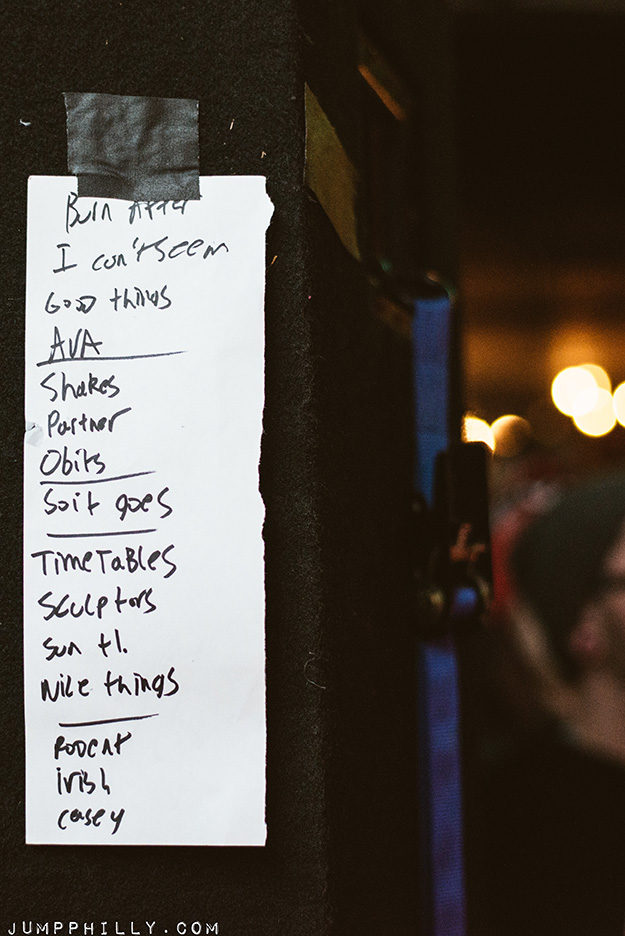 Burn After
I can't seem
Good things
AVA
Shakes
Partner
Obits
So it goes
TimeTaBles
Sculptors
Sun tl.
Nice things
Rodent
irish
casey
JUMPPHILLY.COM